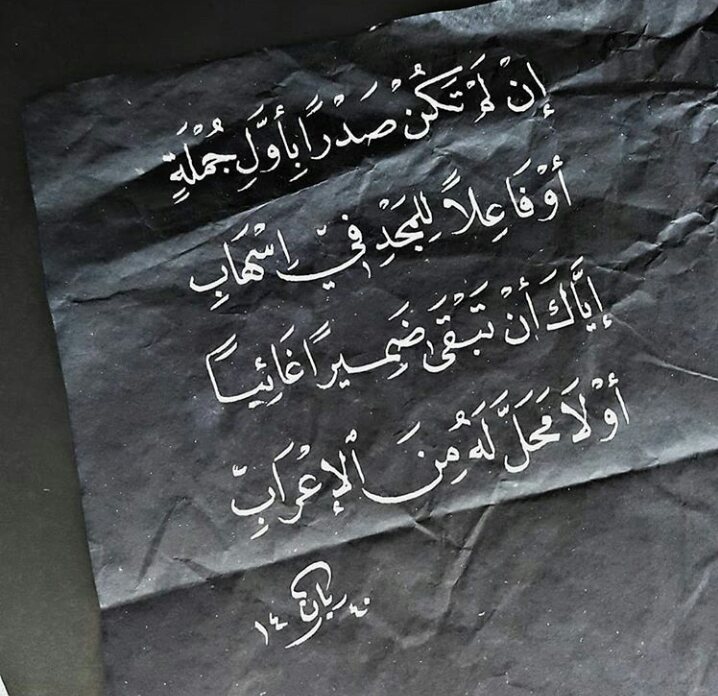 إِنْ لَمْ تَكُنْ صَدْرًا بِأَوَّلِ جُمْلَةٍ
أَوْ فَاعِلاً لِلْمَجْدِ فِيْ إِسْهَابِ
إِيَّاكَ أَنْ تَبْقَىْ ضَمِيرًا غَائِبًا
أَوْ لَا مَحَلَّ لَهُ مِنَ ٱلْإِعْرَابِ